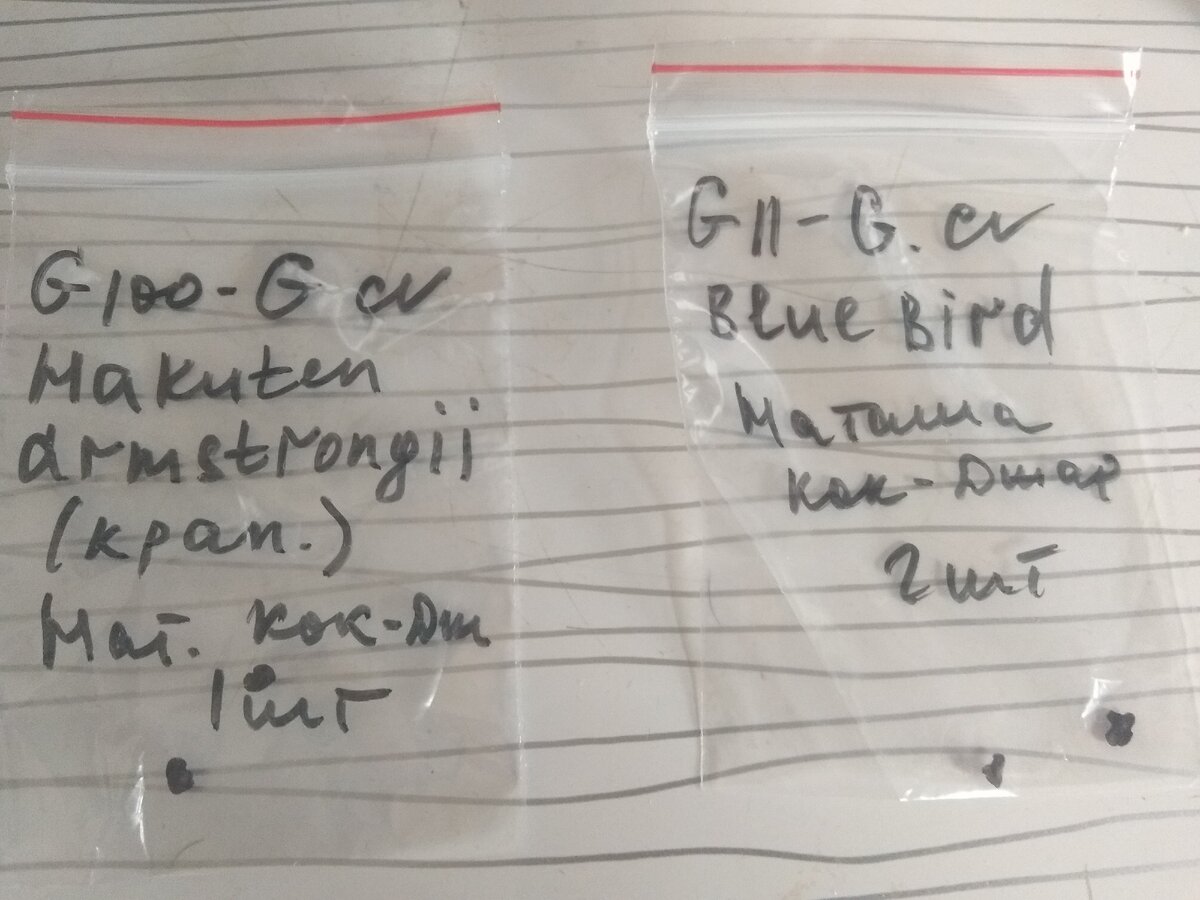 G100-G cv
Makuten
armstrongii
(крап.)
Мат. кок-Дж
1 шт
G11-G. cv
Blue Bird
Наташа
кок-Джар
2 шт